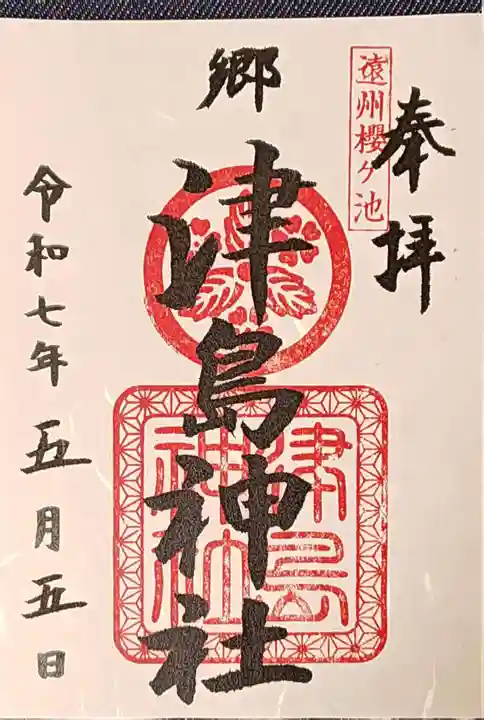 奉拝
遠州櫻ヶ池
郷
津島神社
津島
神社
令和七年五月五日